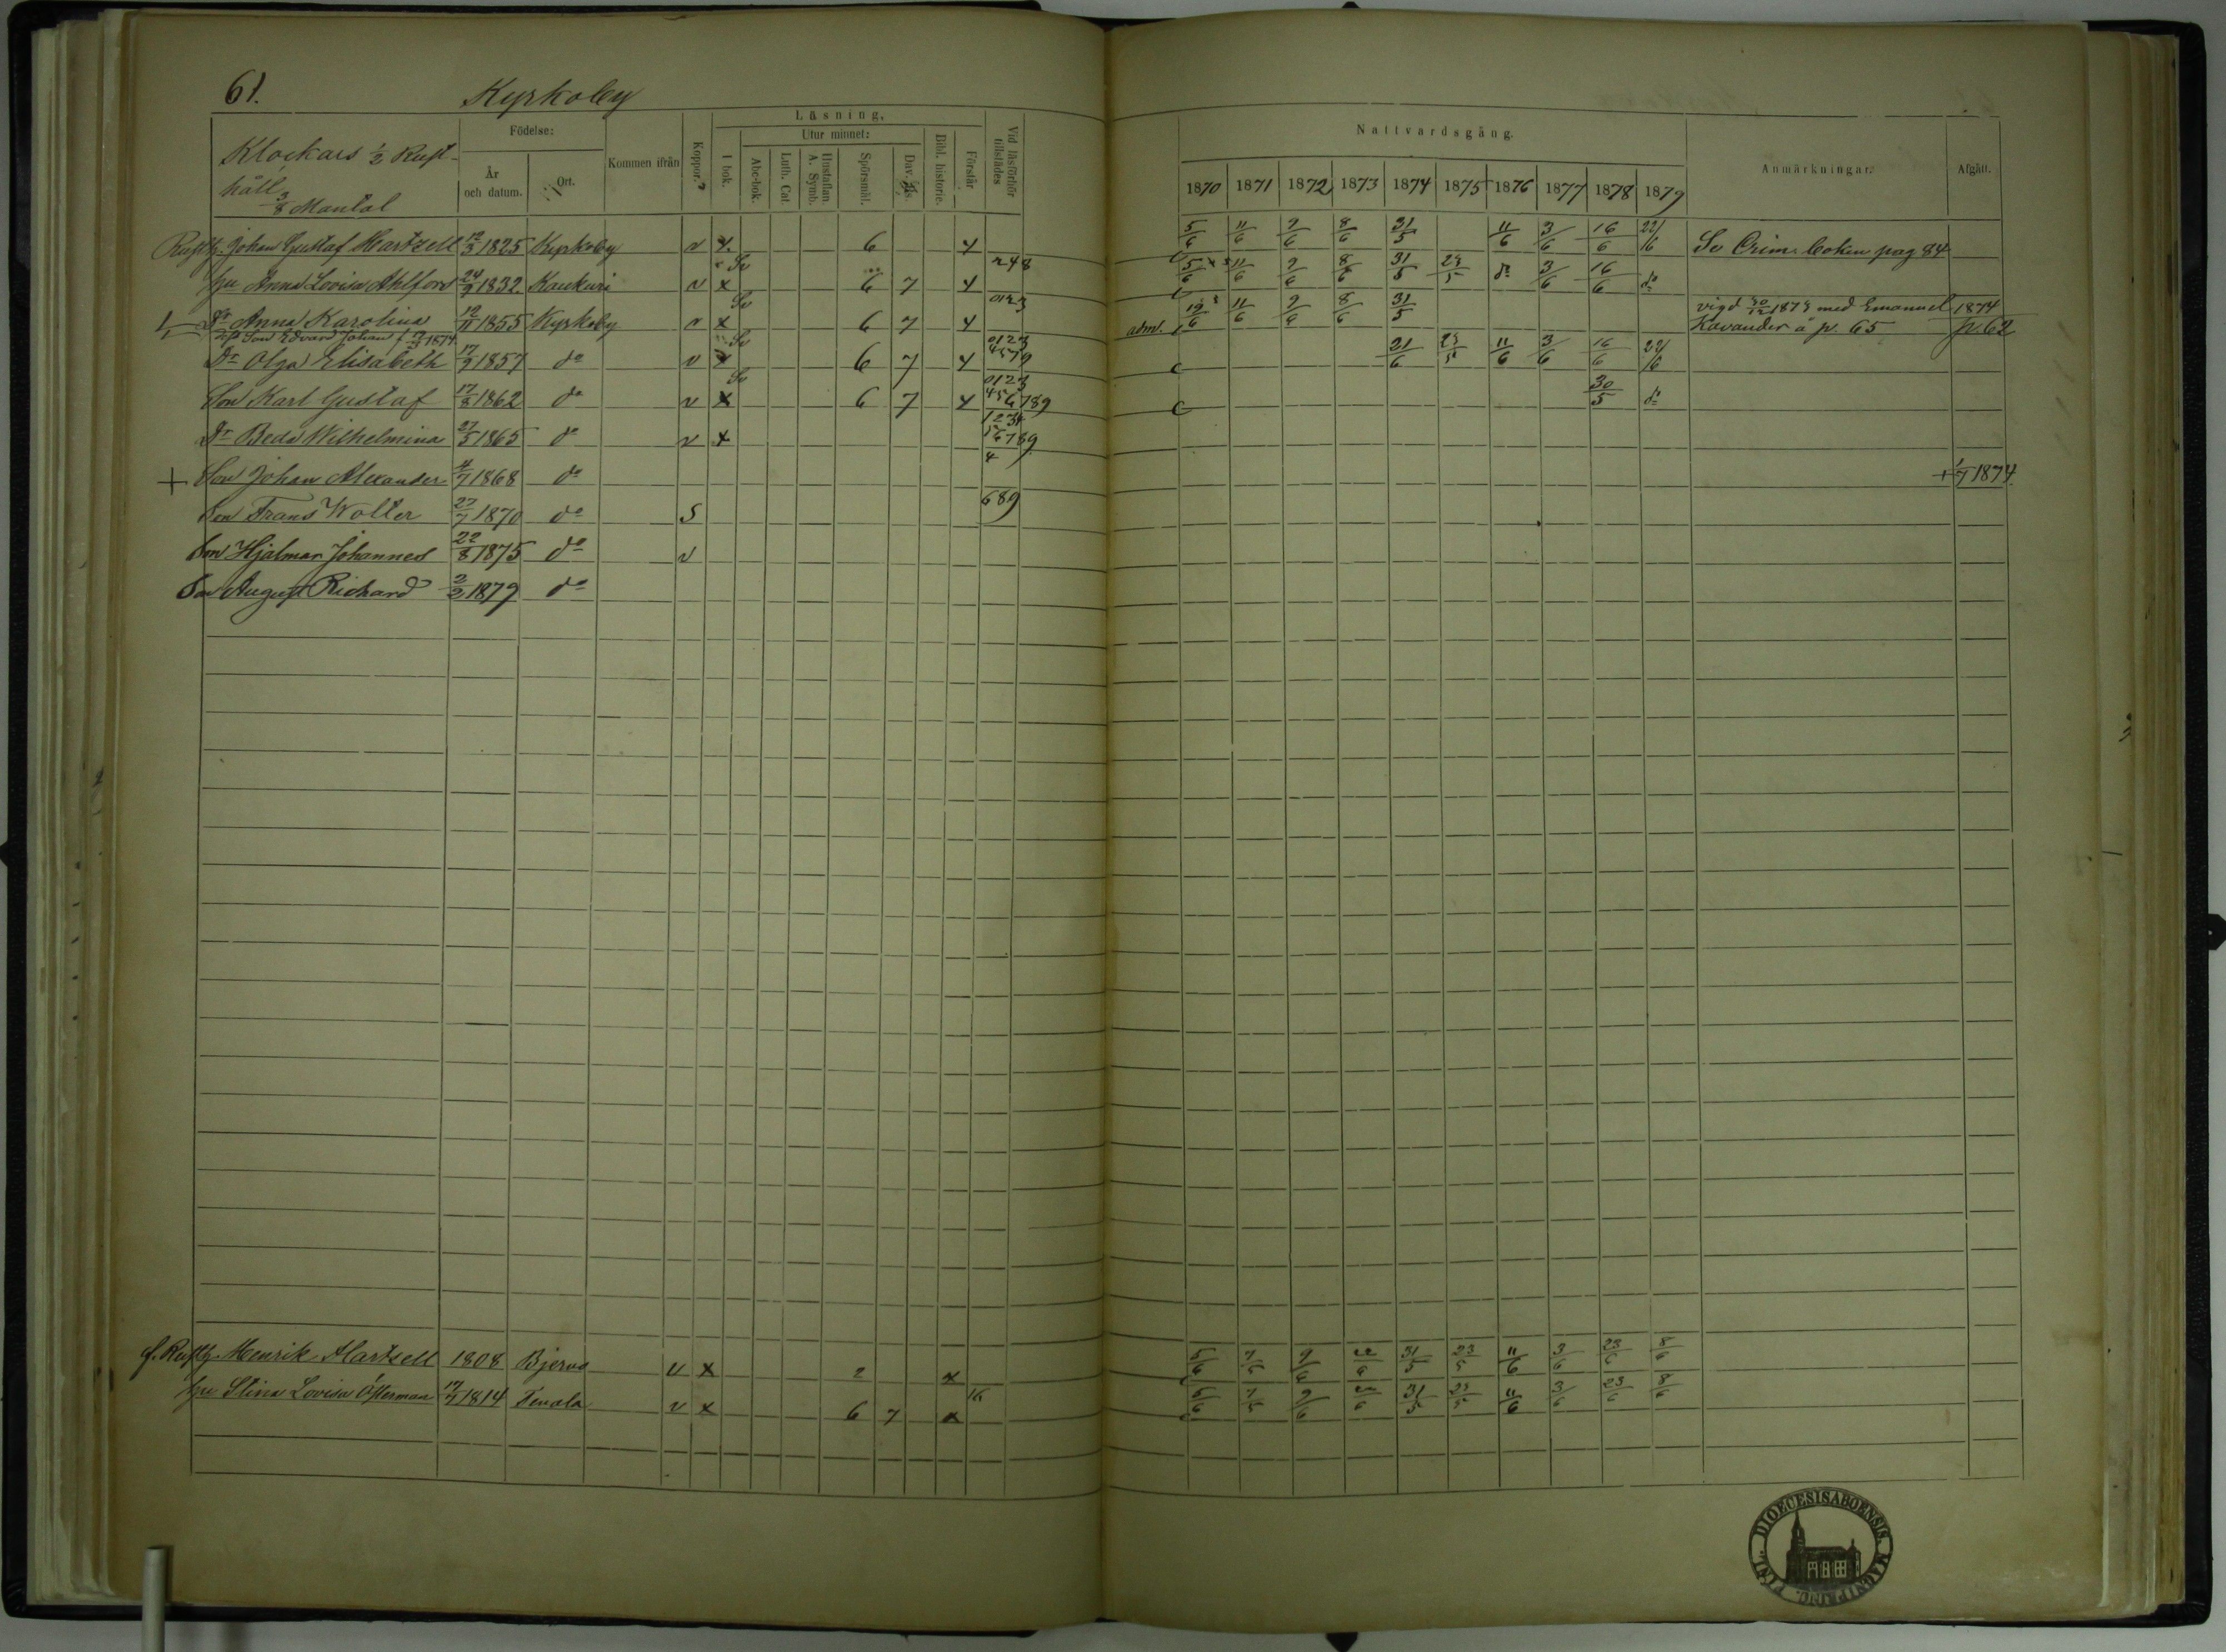 61. Kyrkoby
Klockars 1/2 Rust-
håll
3/8 Mantal
Födelse:
År och datum.
Ort.
Kommen ifrån
Koppor.
Läsning.
I bok.
Utur minnet:
Abc-bok.
Luth. Cat.
Hustaflan. A. Symb.
Spörsmål.
Dav. Ps.
Bibl. historie.
Förstår
Vid läsförhör tillstädes
Nattvardsgång.
1870 1871 1872 1873 1874 1875 1876 1877 1878 1879
Anmärkningar.
Afgått.
Rusth. Johan Gustaf Hartzell 12/3 1825 Kyrkoby v x 6 x 5/6 11/6 9/6 8/6 31/5 11/6 3/6 16/6 22/6 Se Crim. boken pag 84
hu Anna Lovisa Ahlfors 24/9 1832 Kaukuri v x 6 7 x 248 5/6 11/6 9/6 8/6 31/5 23/5 do 3/6 16/6 do
Dr Anna Karolina 12/11 1855 Kyrkoby v x 6 7 x 0123 adm. 12/6 11/6 9/6 8/6 31/5 vigd 30/12 1873 med Emanuel 1874
Kavander å p. 65 p. 62
Son Edvard Johan f. 1874
Dr Olga Elisabeth 17/9 1857 do v x 6 7 x 0123 4579 21/6 23/5 11/6 3/6 16/6 22/6
Son Karl Gustaf 17/8 1862 do v x 6 7 x 0123 456789 30/5 do
Dr Beda Wilhelmina 27/5 1865 do v x 1234 56789
+ Son Johan Alexander 4/7 1868 do 4 + 1/7 1874
Son Frans Wolter 27/7 1870 do S 689
Son Hjalmar Johannes 22/8 1875 do v
Son August Richard 2/2 1879 do
f. Rusth. Henrik Hartsell 1808 Bjerno v x 2 x 5/6 9/6 31/5 23/5 11/6 3/6 23/6 8/6
hu Stina Lovisa Österman 17/7 1814 Tenala v x 6 7 x 16 5/6 9/6 31/5 23/5 11/6 3/6 23/6 8/6
FINL. DIOECESIS ABOENSIS MAGNI PRINC.